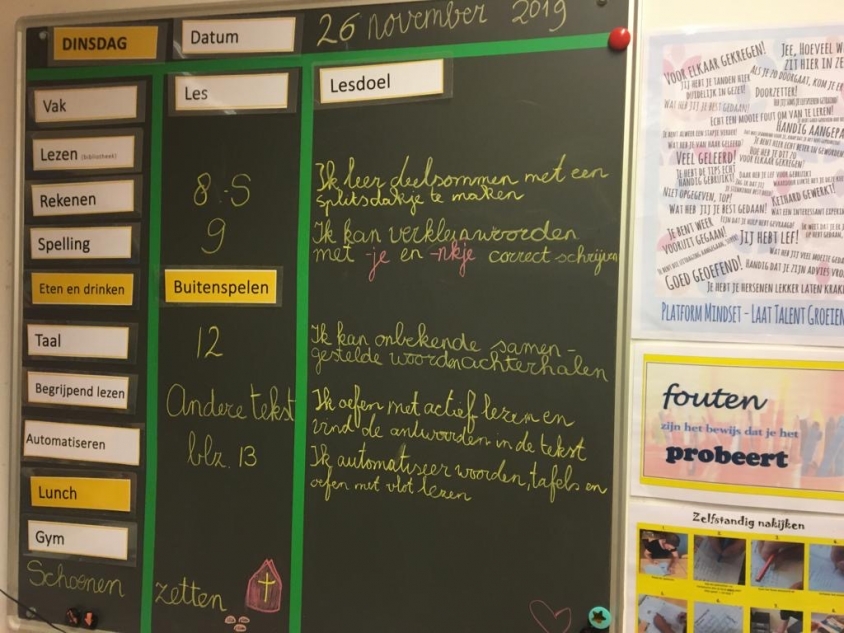 DINSDAG Datum 26 november 2019
Vak Les Lesdoel
Lezen (bibliotheek)
Rekenen 8 - S Ik leer deelsommen met een
splitsdakje te maken
Spelling 9 Ik kan verkleinwoorden
met -je en -nkje correct schrijven
Eten en drinken Buitenspelen
Taal 12 Ik kan onbekende samen-
gestelde woordnachterhalen
Begrijpend lezen Andere tekst Ik oefen met actief lezen en
vind de antwoorden in de tekst
Automatiseren blz. 13 Ik automatiseer woorden, tafels en
oefen met vlot lezen
Lunch
Gym
Schoenen zetten
VOOR ELKAAR GEKREGEN!
JEE, HOEVEEL
ZIT HIER IN ZE
JIJ HEBT JE TANDEN HIER
DUIDELIJK IN GEZET!
ALS JE ZO DOORGAAT, KOM JE ER
DOORZETTER!
WAT HEB JIJ JE BEST GEDAAN!
ECHT EEN MOOIE FOUT OM VAN TE LEREN!
HANDIG AANGEPA
VEEL GELEERD!
VOOR ELKAAR GEKREGEN!
JE HEBT DE TIPS ECHT
HANDIG GEBRUIKT!
NIET OPGEGEVEN, TOP!
KEIHARD GEWERKT!
WAT HEB JIJ JE BEST GEDAAN!
JE BENT WEER
VOORUIT GEGAAN!
JIJ HEBT LEF!
GOED GEOEFEND!
HANDIG DAT JE ZIJN ADVIES
JE HEBT JE HERSENEN LEKKER LATEN KRAK
PLATFORM MINDSET - LAAT TALENT GROEIEN
fouten
zijn het bewijs dat je het
probeert
Zelfstandig nakijken